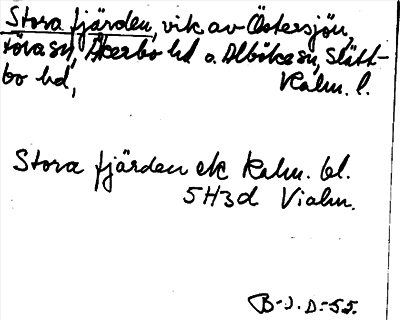 Stora fjärden, vik av Östersjön,
sn, Åkerbo hd o. Alböke sn, Slätt-
bo hd, Kalm. l.
Stora fjärden ek Kalm. bl.
5H3d Vialm.
B-J. D.-55.